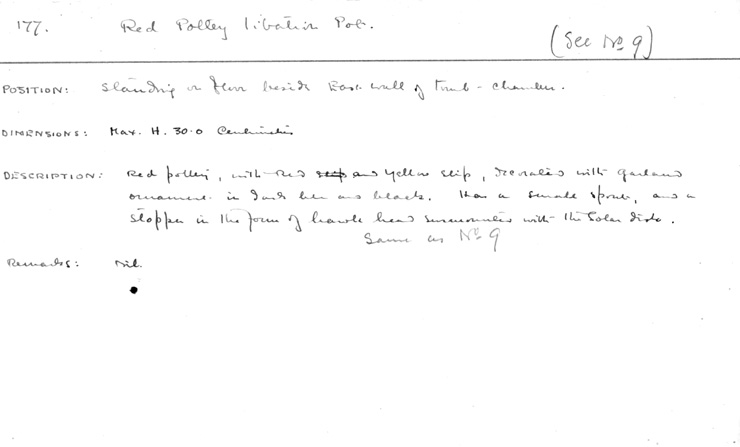 177. Red Pottery libation Pot.
(See No 9)
POSITION: Standing on floor beside East wall of tomb-chamber.
DIMENSIONS: Max. H. 30.0 Centimetres
DESCRIPTION: Red pottery, with red slip and yellow slip, decorated with garland
ornament in dark blue and black. Has a small spout, and a
stopper in the form of hawk's head surmounted with the Solar disk.
Same as No 9
Remarks: Nil.